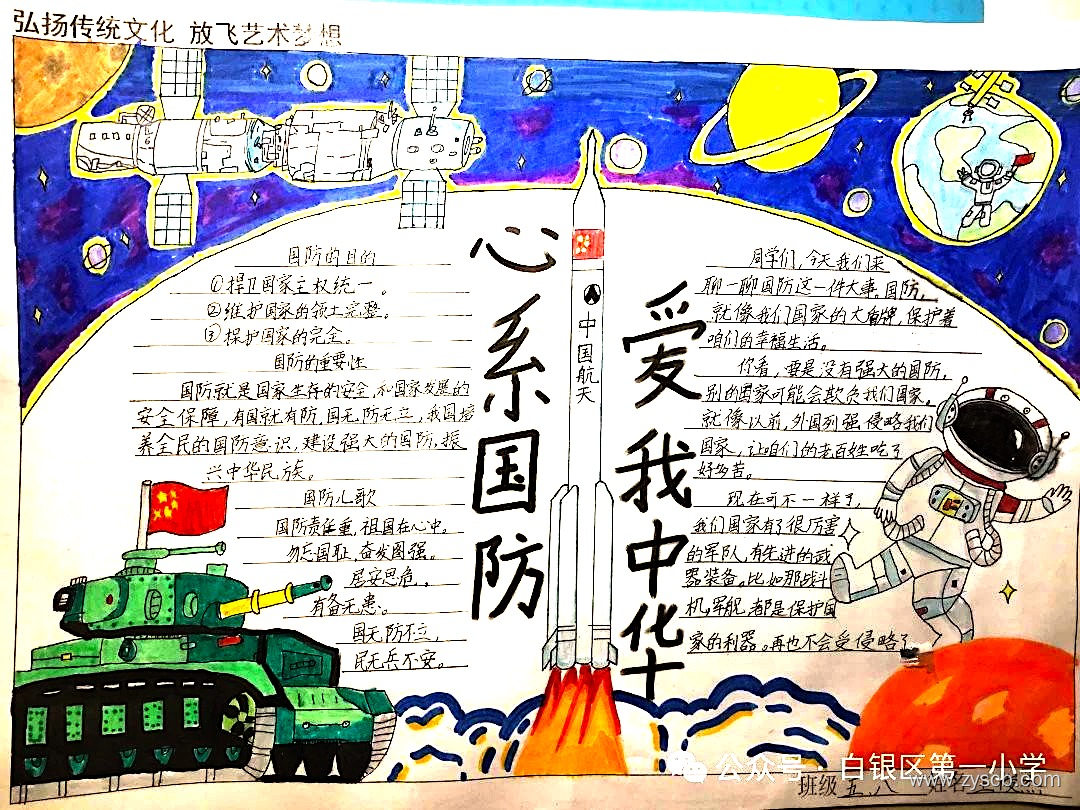 弘扬传统文化 放飞艺术梦想
国防的目的
①捍卫国家主权统一。
②维护国家的领土完整。
③保护国家的完全。
国防的重要性
国防就是国家生存的安全,和国家发展的
安全保障,有国就有防,国无防无立,我国培
养全民的国防意识,建设强大的国防,振
兴中华民族。
国防儿歌
国防责任重,祖国在心中。
勿忘国耻,奋发图强。
居安思危,
有备无患。
国无防不立,
民无兵不安。
心系国防
中国航天
爱我中华
同学们,今天我们来
聊一聊国防这一件大事。国防,
就像我们国家的大盾牌,保护着
咱们的幸福生活。
你看,要是没有强大的国防,
别的国家可能会欺负我们国家,
就像以前,外国列强侵略我们
国家,让咱们的老百姓吃了
好多苦。
现在可不一样了,
我们国家有了很厉害
的军队,有先进的武
器装备。比如那战斗
机,军舰,都是保护国
家的利器。再也不会受侵略了
公众号 白银区第一小学
班级 五.八 姓名
www.zyscb.com